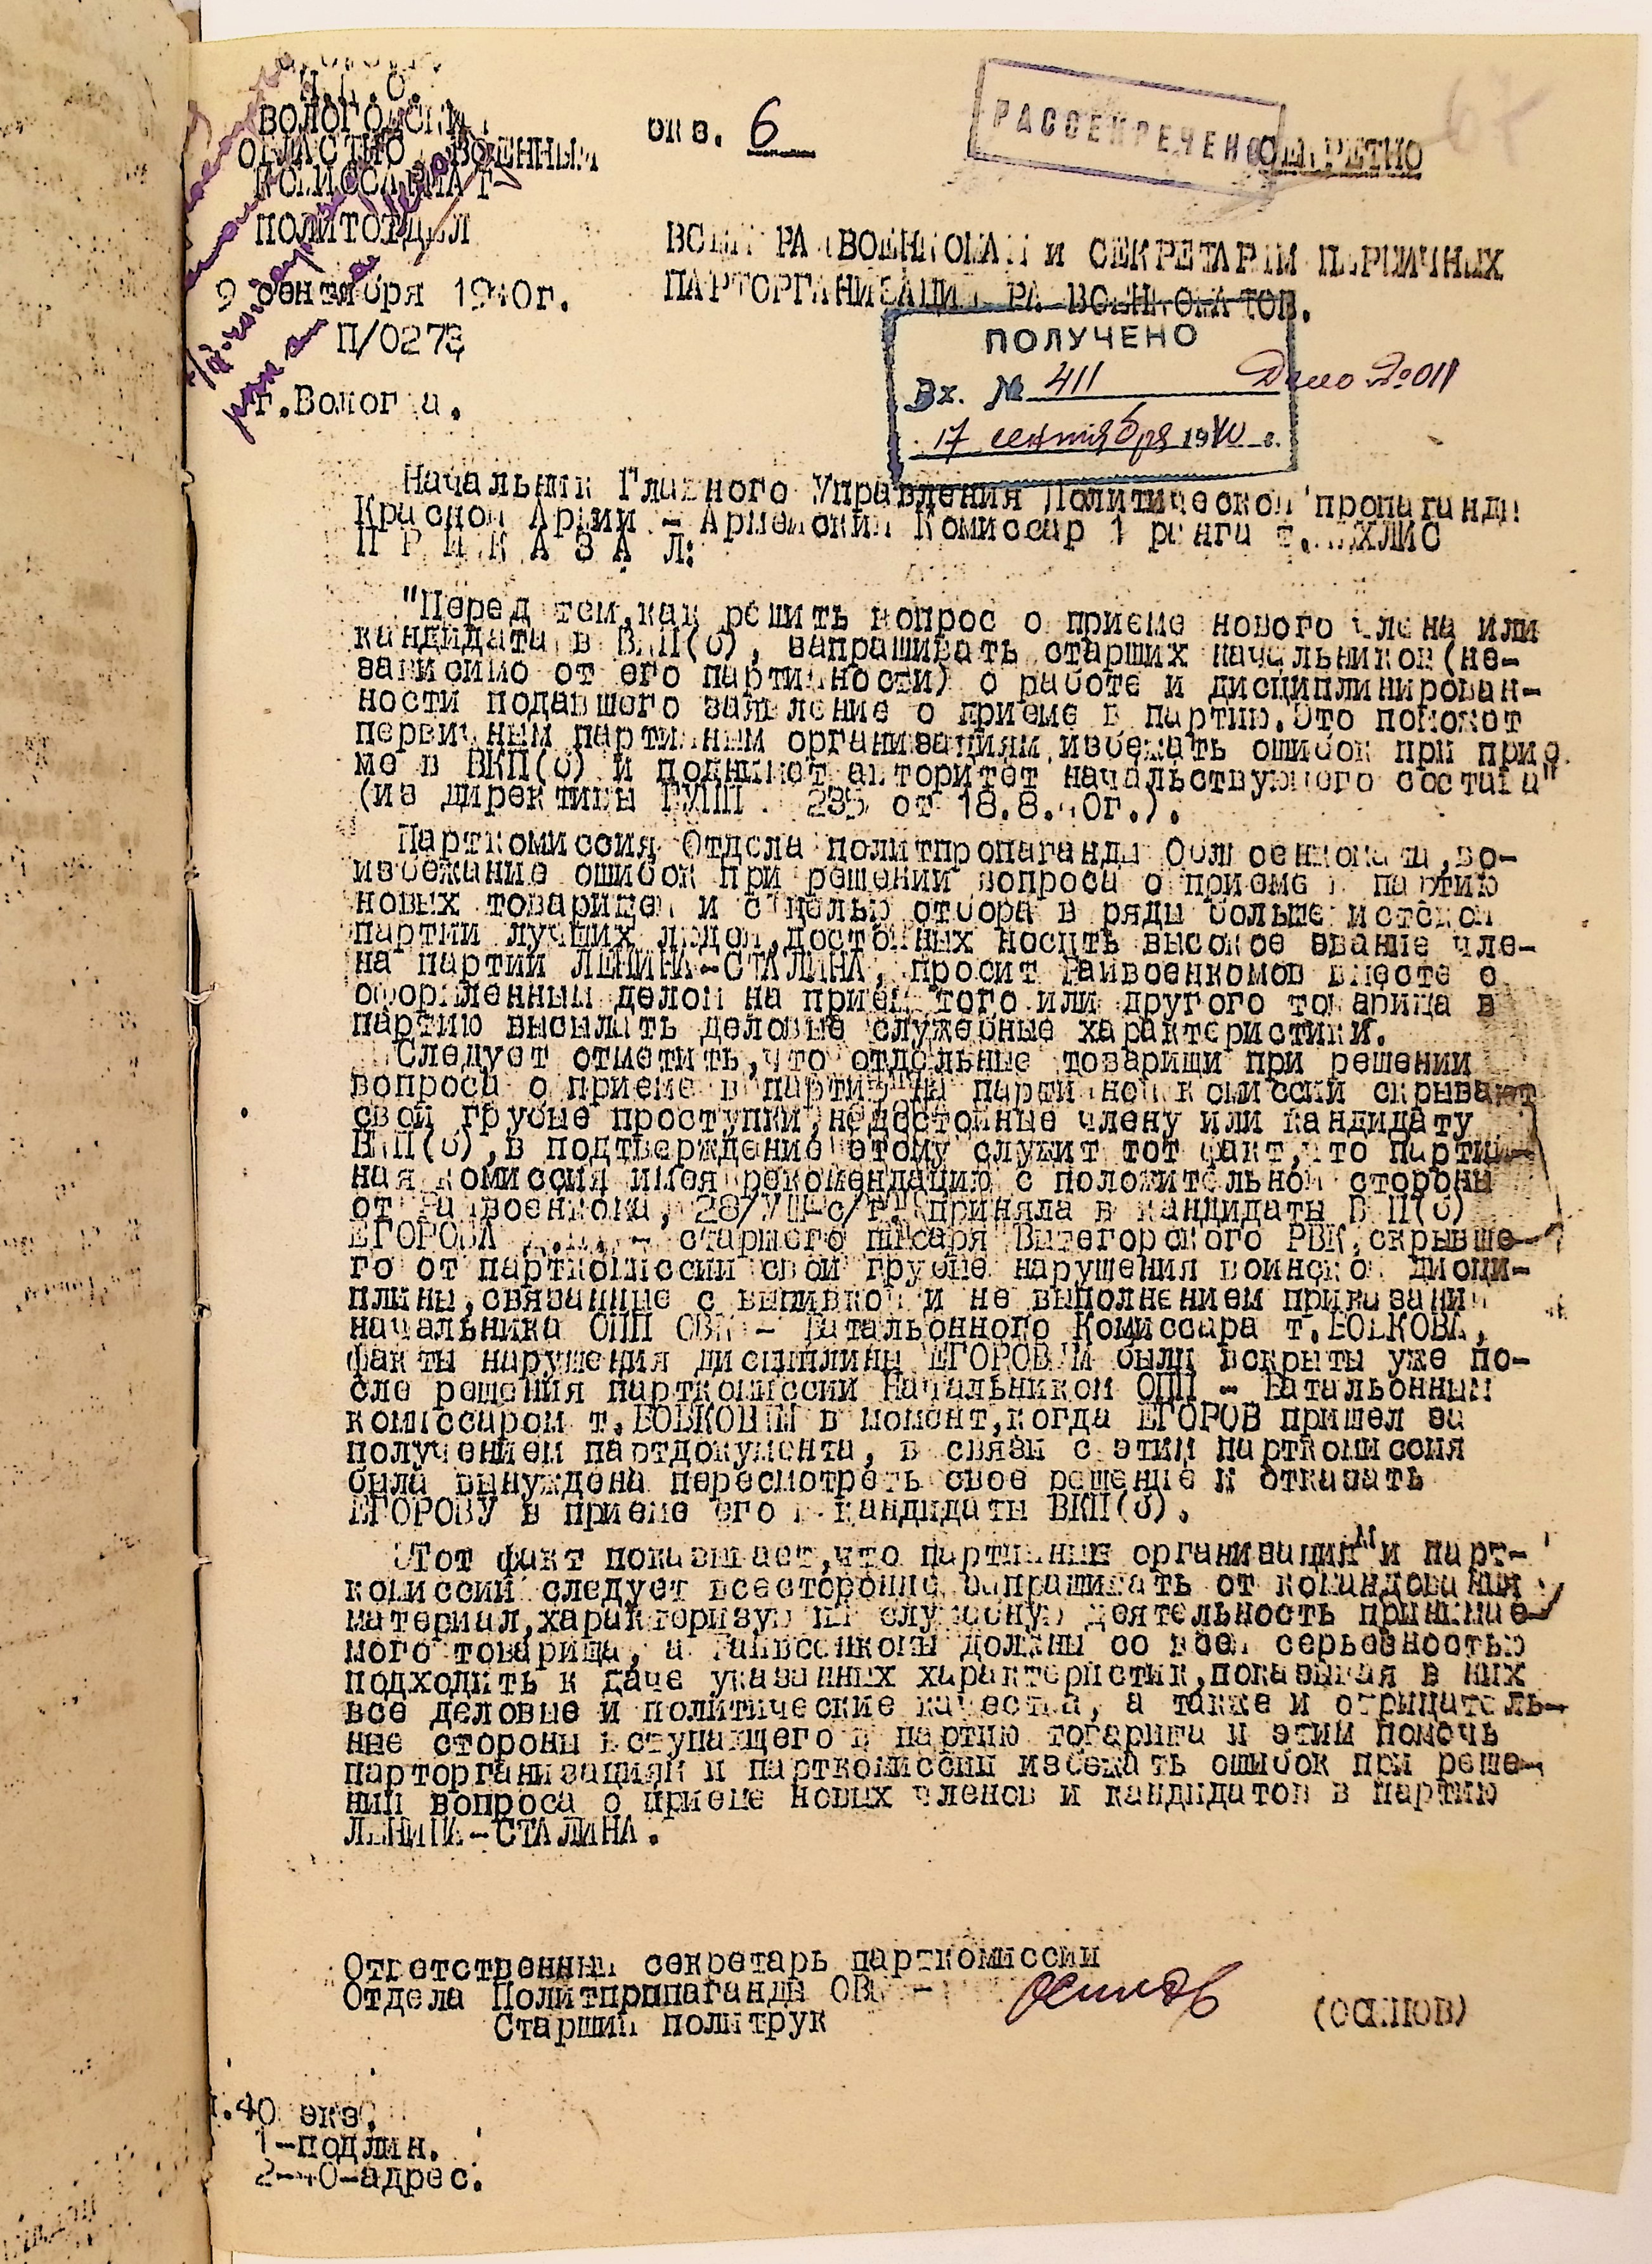 Н.К.О.
ВОЛОГОДСКИЙ
ОБЛАСТНОЙ ВОЕННЫЙ
КОМИССАРИАТ
ПОЛИТОТДЕЛ
9 сентября 1940г.
П/0273
г.Вологда.
экз. 6
РАССЕКРЕЧЕНО
СЕКРЕТНО
67
ВСЕМ РАЙВОЕНКОМАМ и СЕКРЕТАРЯМ ПЕРВИЧНЫХ
ПАРТОРГАНИЗАЦИЙ РАЙВОЕНКОМАТОВ.
ПОЛУЧЕНО
Вх. № 411 Дело №011
17 сентября 1940 г.
Начальник Главного Управления Политической пропаганды
Красной Армии - Армейский Комиссар 1 ранга т. МЕХЛИС
П Р И К А З А Л:
"Перед тем,как решить вопрос о приеме нового члена или
кандидата в ВКП(б), запрашивать старших начальников(не-
зависимо от его партийности) о работе и дисциплинирован-
ности подавшего заявление о приеме в партию.Это поможет
первичным партийным организациям избежать ошибок при прие
ме в ВКП(б) и поднимет авторитет начальствующего состава"
(из директивы ГУПП 235 от 18.8.40г.).
Парткомиссия Отдела политпропаганды Облвоенкомата,во-
избежание ошибок при решении вопроса о приеме в партию
новых товарищей и с целью отбора в ряды большевистской
партии лучших людей,достойных носить высокое звание чле-
на партии ЛЕНИНА-СТАЛИНА, просит Райвоенкомов вместе с
оформленным делом на прием того или другого товарища в
партию высылать деловые служебные характеристики.
Следует отметить,что отдельные товарищи при решении
вопроса о приеме в партию на партийной комиссии скрывают
свои грубые проступки,недостойные члену или кандидату
ВКП(б),в подтверждение этому служит тот факт,что партий-
ная комиссия имея рекомендацию с положительной стороны
от Райвоенкома, 28/VIII-с/г. приняла в кандидаты ВКП(б)
ЕГОРОВА - старшего писаря Вытегорского РВК,скрывше-
го от парткомиссии свои грубые нарушения воинской дисци-
плины,связанные с выпивкой и не выполнением приказания
начальника ОПП ОВК - Батальонного Комиссара т.БОБКОВА,
факты нарушения дисциплины ЕГОРОВЫМ были вскрыты уже по-
сле решения парткомиссии Начальником ОПП - Батальонным
комиссаром т.БОБКОВЫМ в момент,когда ЕГОРОВ пришел за
получением партдокумента, в связи с этим парткомиссия
была вынуждена пересмотреть свое решение и отказать
ЕГОРОВУ в приеме его в кандидаты ВКП(б).
Этот факт показывает,что партийные организациям и парт-
комиссий следует всесторонне запрашивать от командования
материал,характеризующий служебную деятельность принимае-
мого товарища, а Райвоенкомы должны со всей серьезностью
подходить к даче указанных характеристик,показывая в них
все деловые и политические качества, а также и отрицатель-
ные стороны вступающего в партию товарища и этим помочь
парторганизациям и парткомиссии избежать ошибок при реше-
нии вопроса о приеме новых членов и кандидатов в партию
ЛЕНИНА-СТАЛИНА.
Ответственный секретарь парткомиссии
Отдела Политпропаганды ОВК -
Старший политрук
Осипов
(ОСИПОВ)
.40 экз.
1-подлин.
2-40-адрес.